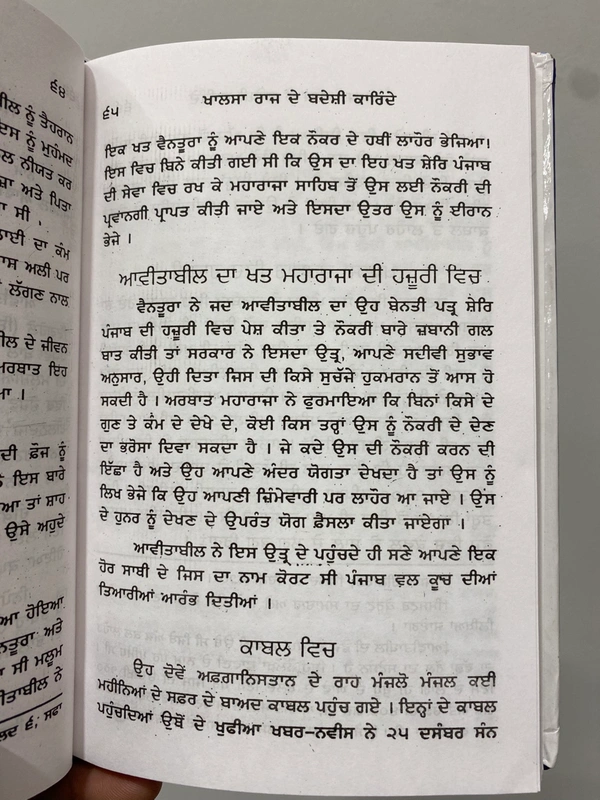 ੬੪
ਬੀਲ ਨੂੰ ਤੈਹਰਾਨ
ਇਸ ਨੂੰ ਮੁਹੰਮਦ
ਲ ਨੀਯਤ ਕਰ
ਬਾ ਅਤੇ ਪਿਤਾ
ਤਾ ਸੀ ,
ਲਾਈ ਦਾ ਕੰਮ
ਾਸ ਅਲੀ ਪਰ
ਲੱਗਣ ਨਾਲ
ਲ ਦੇ ਜੀਵਨ
ਅਰਬਾਤ ਇਹ
ਆ ।
ਦੀ ਫ਼ੌਜ ਨੂੰ
ਨੇ ਇਸ ਬਾਰੇ
ਆ ਤਾਂ ਸ਼ਾਹ
ਉਸੇ ਅਹੁਦੇ
ਆ ਹੋਇਆ
ਵੈਨਤੂਰਾ ਅਤੇ
ਾ ਸੀ ਮਲੂਮ
ਆਵੀਤਾਬੀਲ ਨੇ
ਜਲਦ ੬; ਸਫਾ
੬੫
ਖਾਲਸਾ ਰਾਜ ਦੇ ਬਦੇਸ਼ੀ ਕਾਰਿੰਦੇ
ਇਕ ਖਤ ਵੈਨਤੂਰਾ ਨੂੰ ਆਪਣੇ ਇਕ ਨੌਕਰ ਦੇ ਹਥੀਂ ਲਾਹੌਰ ਭੇਜਿਆ!
ਇਸ ਵਿਚ ਬਿਨੇ ਕੀਤੀ ਗਈ ਸੀ ਕਿ ਉਸ ਦਾ ਇਹ ਖਤ ਸ਼ੇਰਿ ਪੰਜਾਬ
ਦੀ ਸੇਵਾ ਵਿਚ ਰਖ ਕੇ ਮਹਾਰਾਜਾ ਸਾਹਿਬ ਤੋਂ ਉਸ ਲਈ ਨੌਕਰੀ ਦੀ
ਪ੍ਰਵਾਨਗੀ ਪ੍ਰਾਪਤ ਕੀਤੀ ਜਾਏ ਅਤੇ ਇਸਦਾ ਉਤਰ ਉਸ ਨੂੰ ਈਰਾਨ
ਭੇਜੇ ।
ਆਵੀਤਾਬੀਲ ਦਾ ਖਤ ਮਹਾਰਾਜਾ ਦੀ ਹਜ਼ੂਰੀ ਵਿਚ
ਵੈਨਤੂਰਾ ਨੇ ਜਦ ਆਵੀਤਾਬੀਲ ਦਾ ਉਹ ਬੇਨਤੀ ਪਤ੍ਰ ਸ਼ੇਰਿ
ਪੰਜਾਬ ਦੀ ਹਜ਼ੂਰੀ ਵਿਚ ਪੇਸ਼ ਕੀਤਾ ਤੇ ਨੌਕਰੀ ਬਾਰੇ ਜ਼ਬਾਨੀ ਗਲ
ਬਾਤ ਕੀਤੀ ਤਾਂ ਸਰਕਾਰ ਨੇ ਇਸਦਾ ਉਤ੍ਰ, ਆਪਣੇ ਸਦੀਵੀ ਸੁਭਾਵ
ਅਨੁਸਾਰ, ਉਹੀ ਦਿਤਾ ਜਿਸ ਦੀ ਕਿਸੇ ਸੁਚੱਜੇ ਹੁਕਮਰਾਨ ਤੋਂ ਆਸ ਹੋ
ਸਕਦੀ ਹੈ । ਅਰਥਾਤ ਮਹਾਰਾਜਾ ਨੇ ਫੁਰਮਾਇਆ ਕਿ ਬਿਨਾਂ ਕਿਸੇ ਦੇ
ਗੁਣ ਤੇ ਕੰਮ ਦੇ ਦੇਖੇ ਦੇ, ਕੋਈ ਕਿਸ ਤਰ੍ਹਾਂ ਉਸ ਨੂੰ ਨੌਕਰੀ ਦੇ ਦੇਣ
ਦਾ ਭਰੋਸਾ ਦਿਵਾ ਸਕਦਾ ਹੈ । ਜੇ ਕਦੇ ਉਸ ਦੀ ਨੌਕਰੀ ਕਰਨ ਦੀ
ਇੱਛਾ ਹੈ ਅਤੇ ਉਹ ਆਪਣੇ ਅੰਦਰ ਯੋਗਤਾ ਦੇਖਦਾ ਹੈ ਤਾਂ ਉਸ ਨੂੰ
ਲਿਖ ਭੇਜੋ ਕਿ ਉਹ ਆਪਣੀ ਜ਼ਿੰਮੇਵਾਰੀ ਪਰ ਲਾਹੌਰ ਆ ਜਾਏ । ਉਸ
ਦੇ ਹੁਨਰ ਨੂੰ ਦੇਖਣ ਦੇ ਉਪਰੰਤ ਯੋਗ ਫ਼ੈਸਲਾ ਕੀਤਾ ਜਾਏਗਾ ।
ਆਵੀਤਾਬੀਲ ਨੇ ਇਸ ਉਤ੍ਰ ਦੇ ਪਹੁੰਚਦੇ ਹੀ ਸਣੇ ਆਪਣੇ ਇਕ
ਹੋਰ ਸਾਥੀ ਦੇ ਜਿਸ ਦਾ ਨਾਮ ਕੋਰਟ ਸੀ ਪੰਜਾਬ ਵਲ ਕੂਚ ਦੀਆਂ
ਤਿਆਰੀਆਂ ਆਰੰਭ ਦਿਤੀਆਂ ।
ਕਾਬਲ ਵਿਚ
ਉਹ ਦੋਵੇਂ ਅਫ਼ਗਾਨਿਸਤਾਨ ਦੇ ਰਾਹ ਮੰਜਲੋ ਮੰਜਲ ਕਈ
ਮਹੀਨਿਆਂ ਦੇ ਸਫ਼ਰ ਦੇ ਬਾਅਦ ਕਾਬਲ ਪਹੁੰਚ ਗਏ । ਇਨ੍ਹਾਂ ਦੇ ਕਾਬਲ
ਪਹੁੰਚਦਿਆਂ ਉਥੋਂ ਦੇ ਖੁਫੀਆ ਖਬਰ-ਨਵੀਸ ਨੇ ੨੫ ਦਸੰਬਰ ਸੰਨ